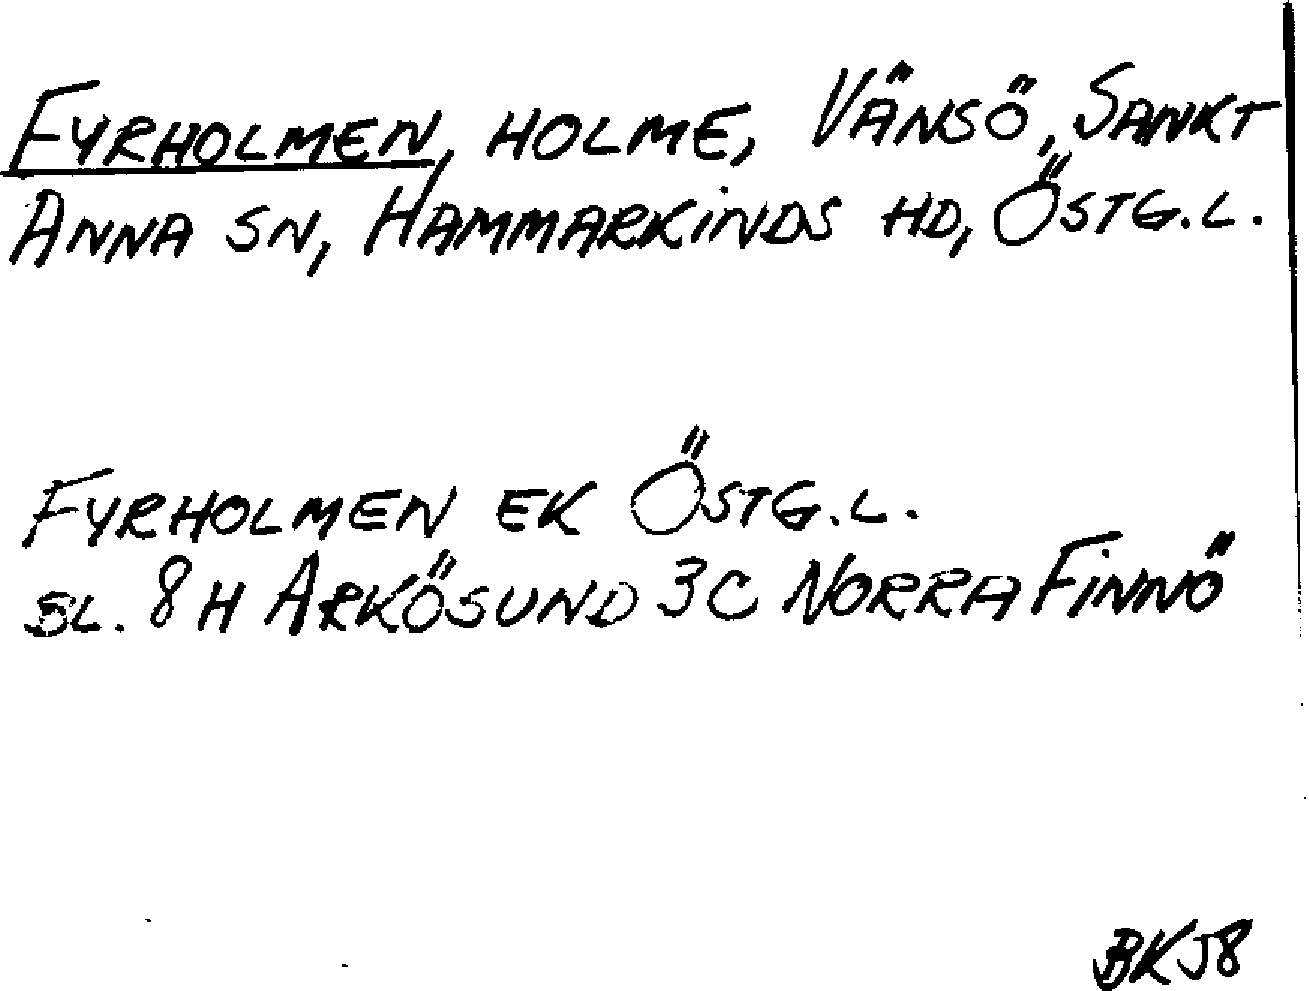 FYRHOLMEN, HOLME, VÄNSÖ, SANKT
ANNA SN, HAMMARKINDS HD, ÖSTG.L.
FYRHOLMEN EK ÖSTG.L.
BL. 8H ARKÖSUND 3C NORRA FINNÖ
BKJ8